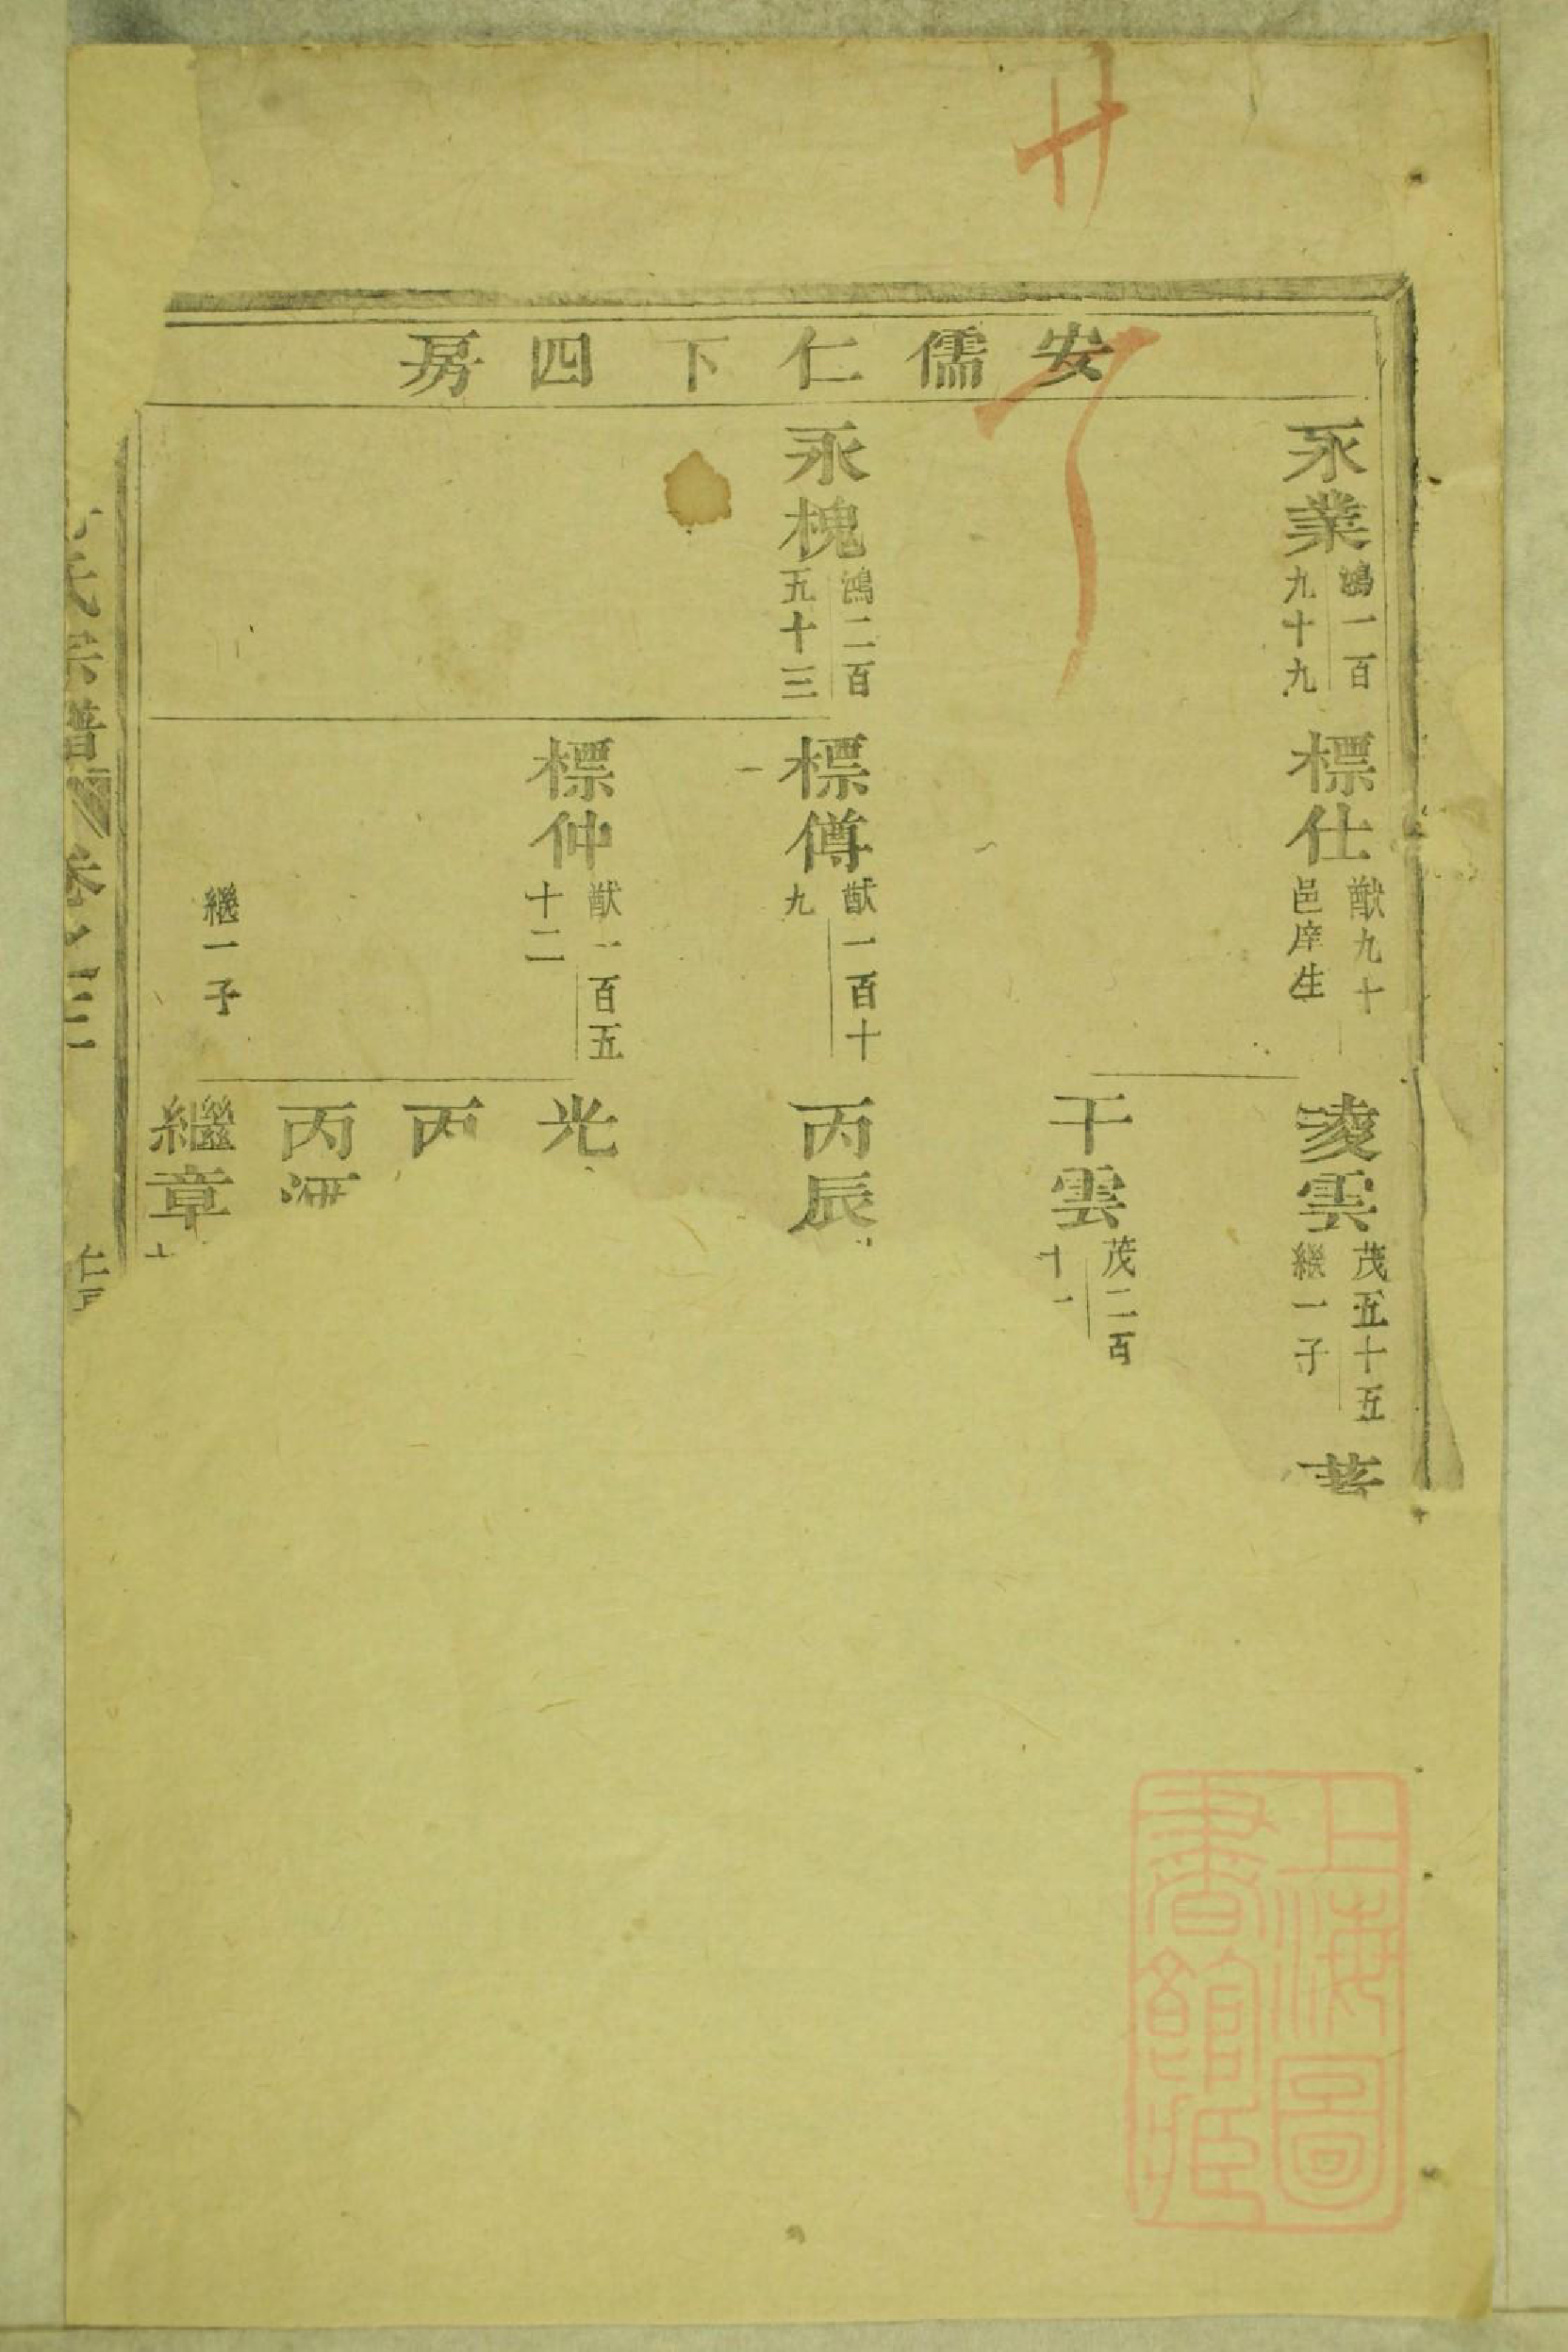 廿
安儒仁下四房
永業 鴻一百九十九
標仕 猷九十 邑庠生
淩雲 茂五十五 繼一子
干雲 茂二百十一
永槐 鴻二百五十三
標傅 猷一百十九
丙辰
標仲 猷一百五十二
光
丙
丙
繼一子
繼章
氏宗譜 卷之三
上海圖書館藏